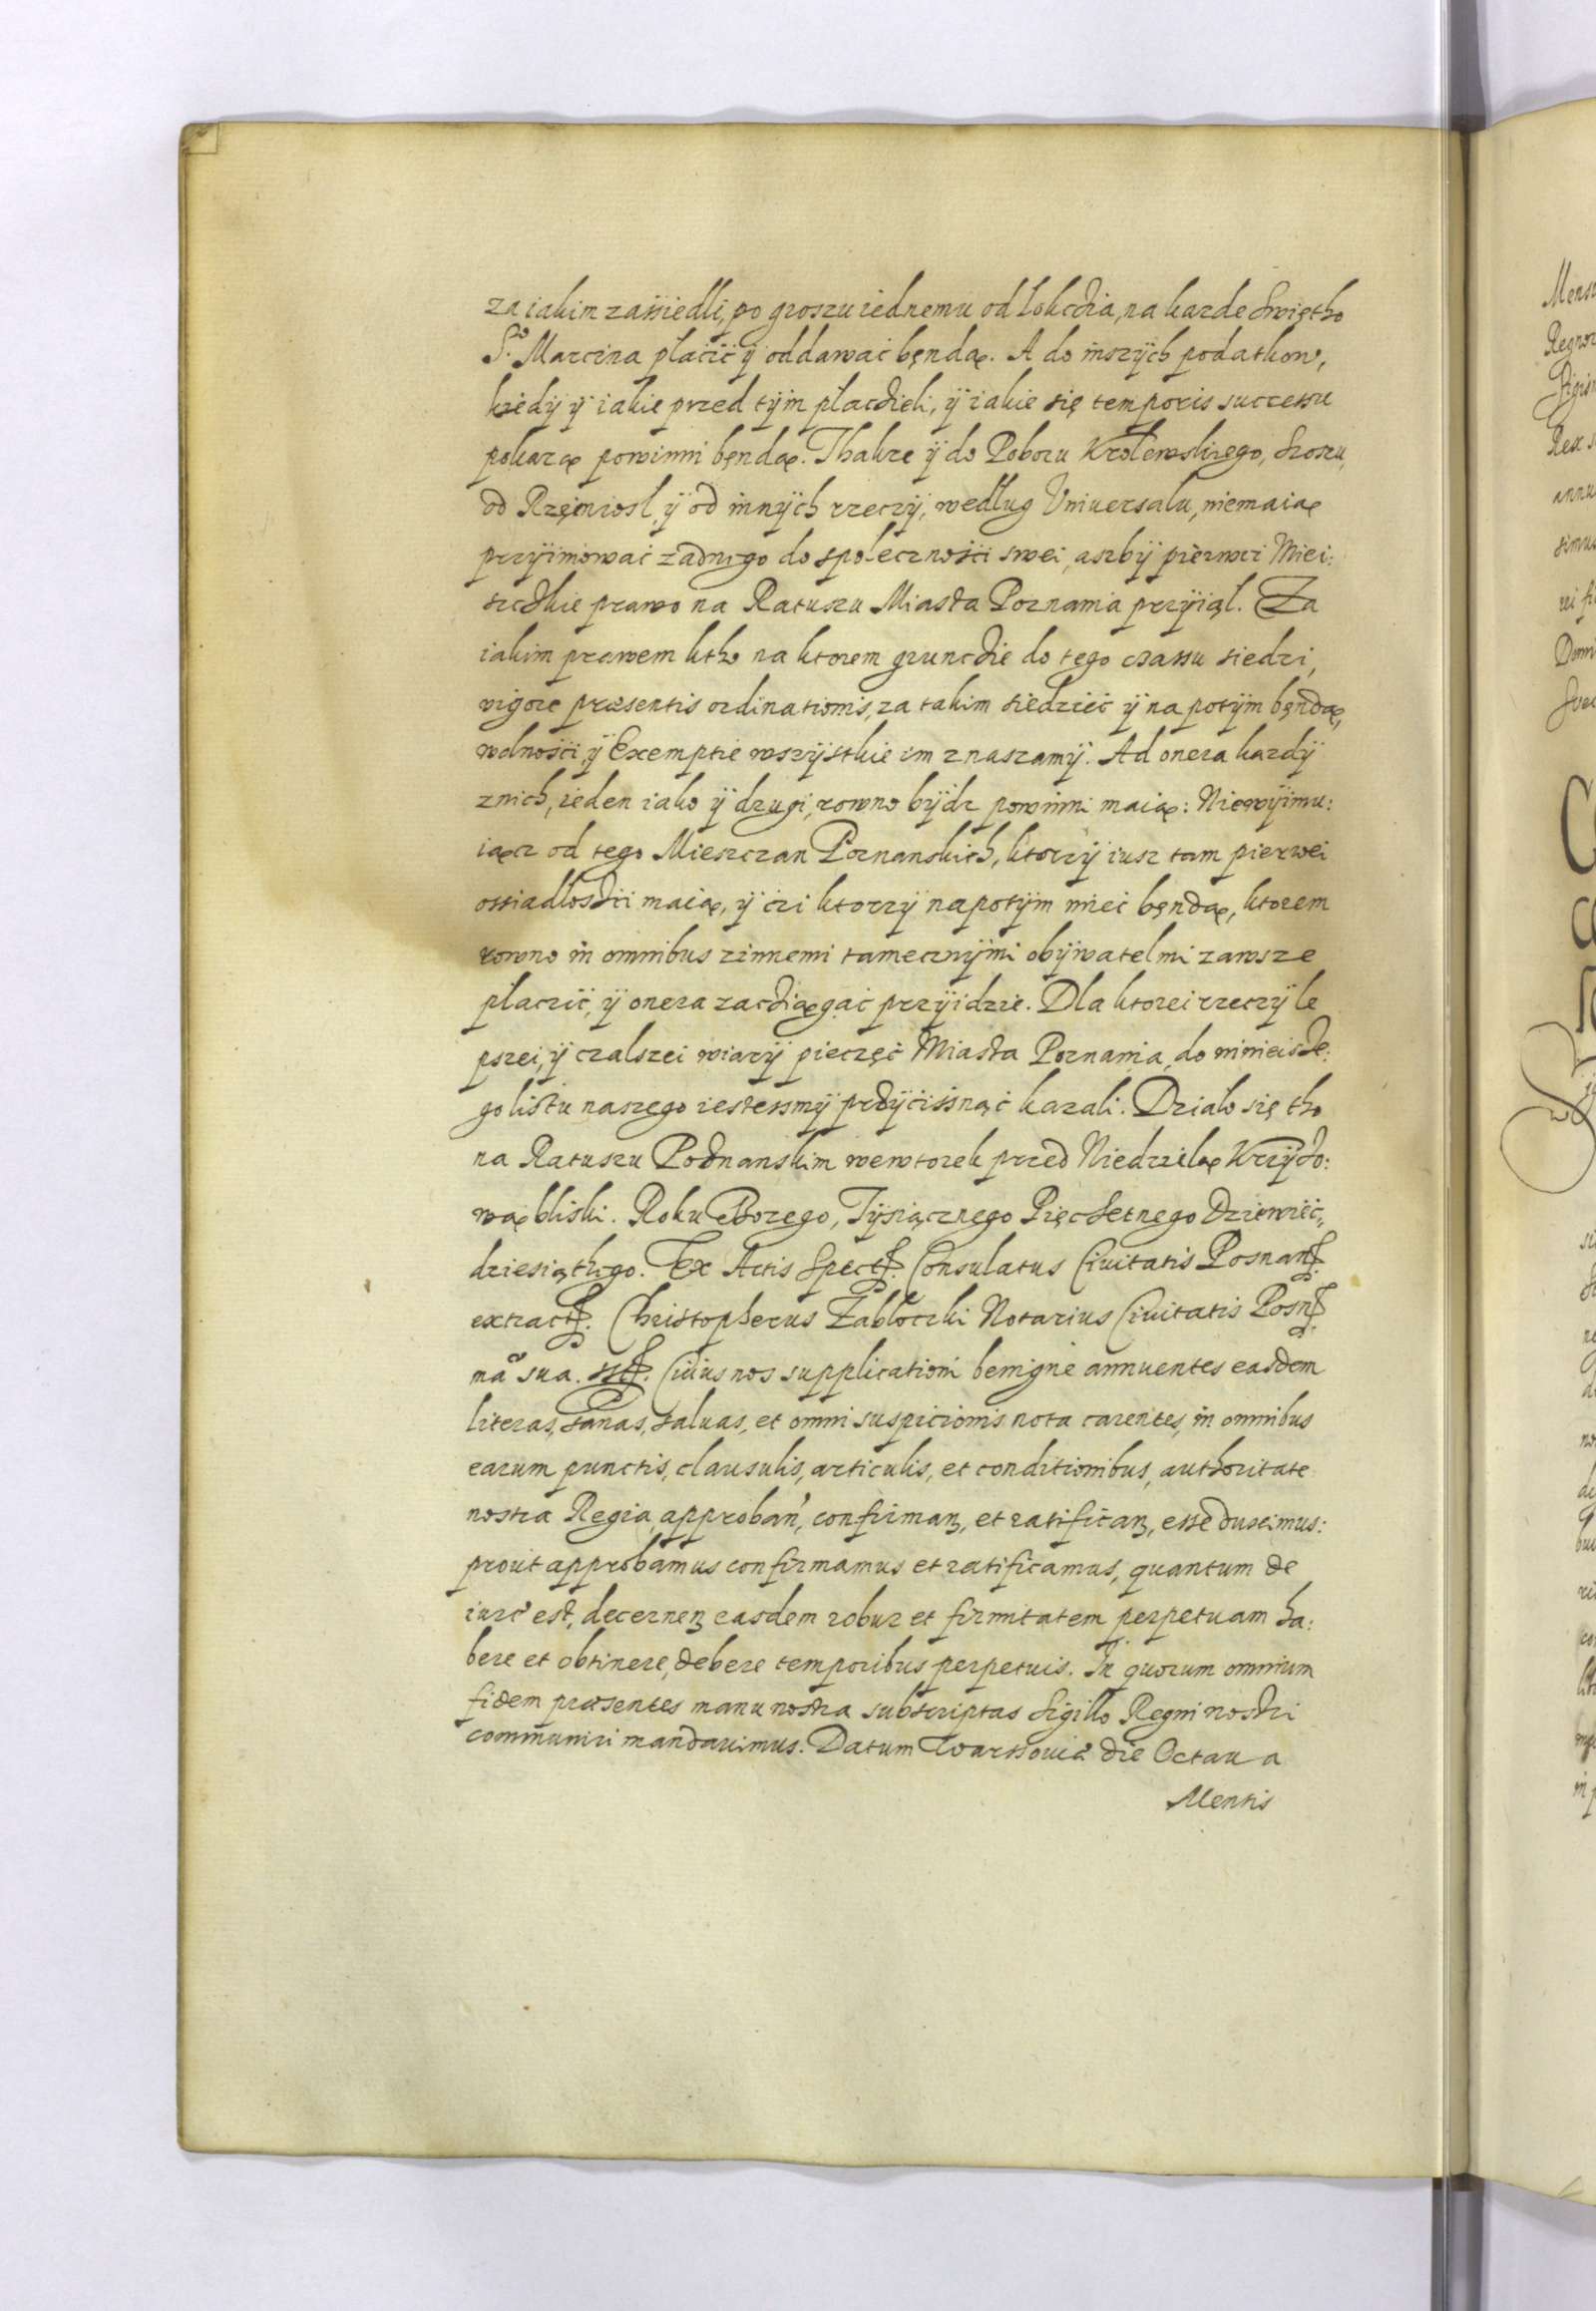 za iakim zassiedli, po groszu iednemu od Łokcźia, na kazde Swiętho
S.º Marcina płacić ÿ oddawać bęndą. A do inszÿch podatkow,
kiedÿ ÿ iakie przed tÿm płacźieli, ÿ iakie się temporis successu
pokazą powinni bęndą. Thakze ÿ do Poboru Krolewskiego, Szosu,
od Rzęmiosł, ÿ od innÿch rzeczÿ, według Uniuersału, niemaią
przÿimować zadnego do społecznośći swei, aszbÿ pierwei Miei:
sczkie prawo na Ratuszu Miasta Poznania przÿiął. Za
iakim prawem ktho na ktorem gruncźie do tego czassu siedzi,
vigore præsentis ordinationis, za takim siedzieć ÿ na potÿm bęndą,
wolnośći, ÿ Exemptie wszÿstkie im znaszamÿ. Ad onera kazdÿ
znich, ieden iako ÿ drugi, rowno bÿdz powinni maią: Niewÿimu:
iącz od tego Mieszczan Poznanskich, ktorzÿ iusz tam pierwei
ossiadłosći maią, ÿ czi ktorzÿ napotÿm mieć bęndą, ktorem
rowno in omnibus zinnemi tamecznÿmi obÿwatelmi zawsze
płaczić, ÿ onera zacźiągać przÿidzie. Dla ktorei rzeczÿ le
pszei, ÿ czalszei wiarÿ pieczęć Miasta Poznania, do ninieisze:
go listu naszego iestessmÿ przÿćisnąć kazali. Działo się tho
na Ratuszu Poznanskim wewtorek przed Niedzielą Krzÿżo:
wą bliski. Roku Bozego, Tÿsiącznego Pięcsetnego Dziewieć,,
dziesiąthego. Ex Actis Spect. Consulatus Ciuitatis Posnan.
extract. Christopherus Zabłoczki Notarius Ciuitatis Posn.
mã sua. sst. Cuius nos supplicationi benigne annuentes easdem
literas, sanas, saluas, et omni suspicionis nota carentes, in omnibus
earum punctis, clausulis, articulis, et conditionibus, authoritate
nostra Regia, approban̄, confirmanʒ, et ratificanʒ, esse duximus:
prout approbamus confirmamus et ratificamus, quantum de
iure est, decernenʒ easdem robur et firmitatem perpetuam ha:
bere et obtinere, debere temporibus perpetuis. In quorum omnium
fidem præsentes manu nostra subscriptas Sigillo Regni nostri
communiri mandauimus. Datum Warssouiæ die Octaua
Mensis